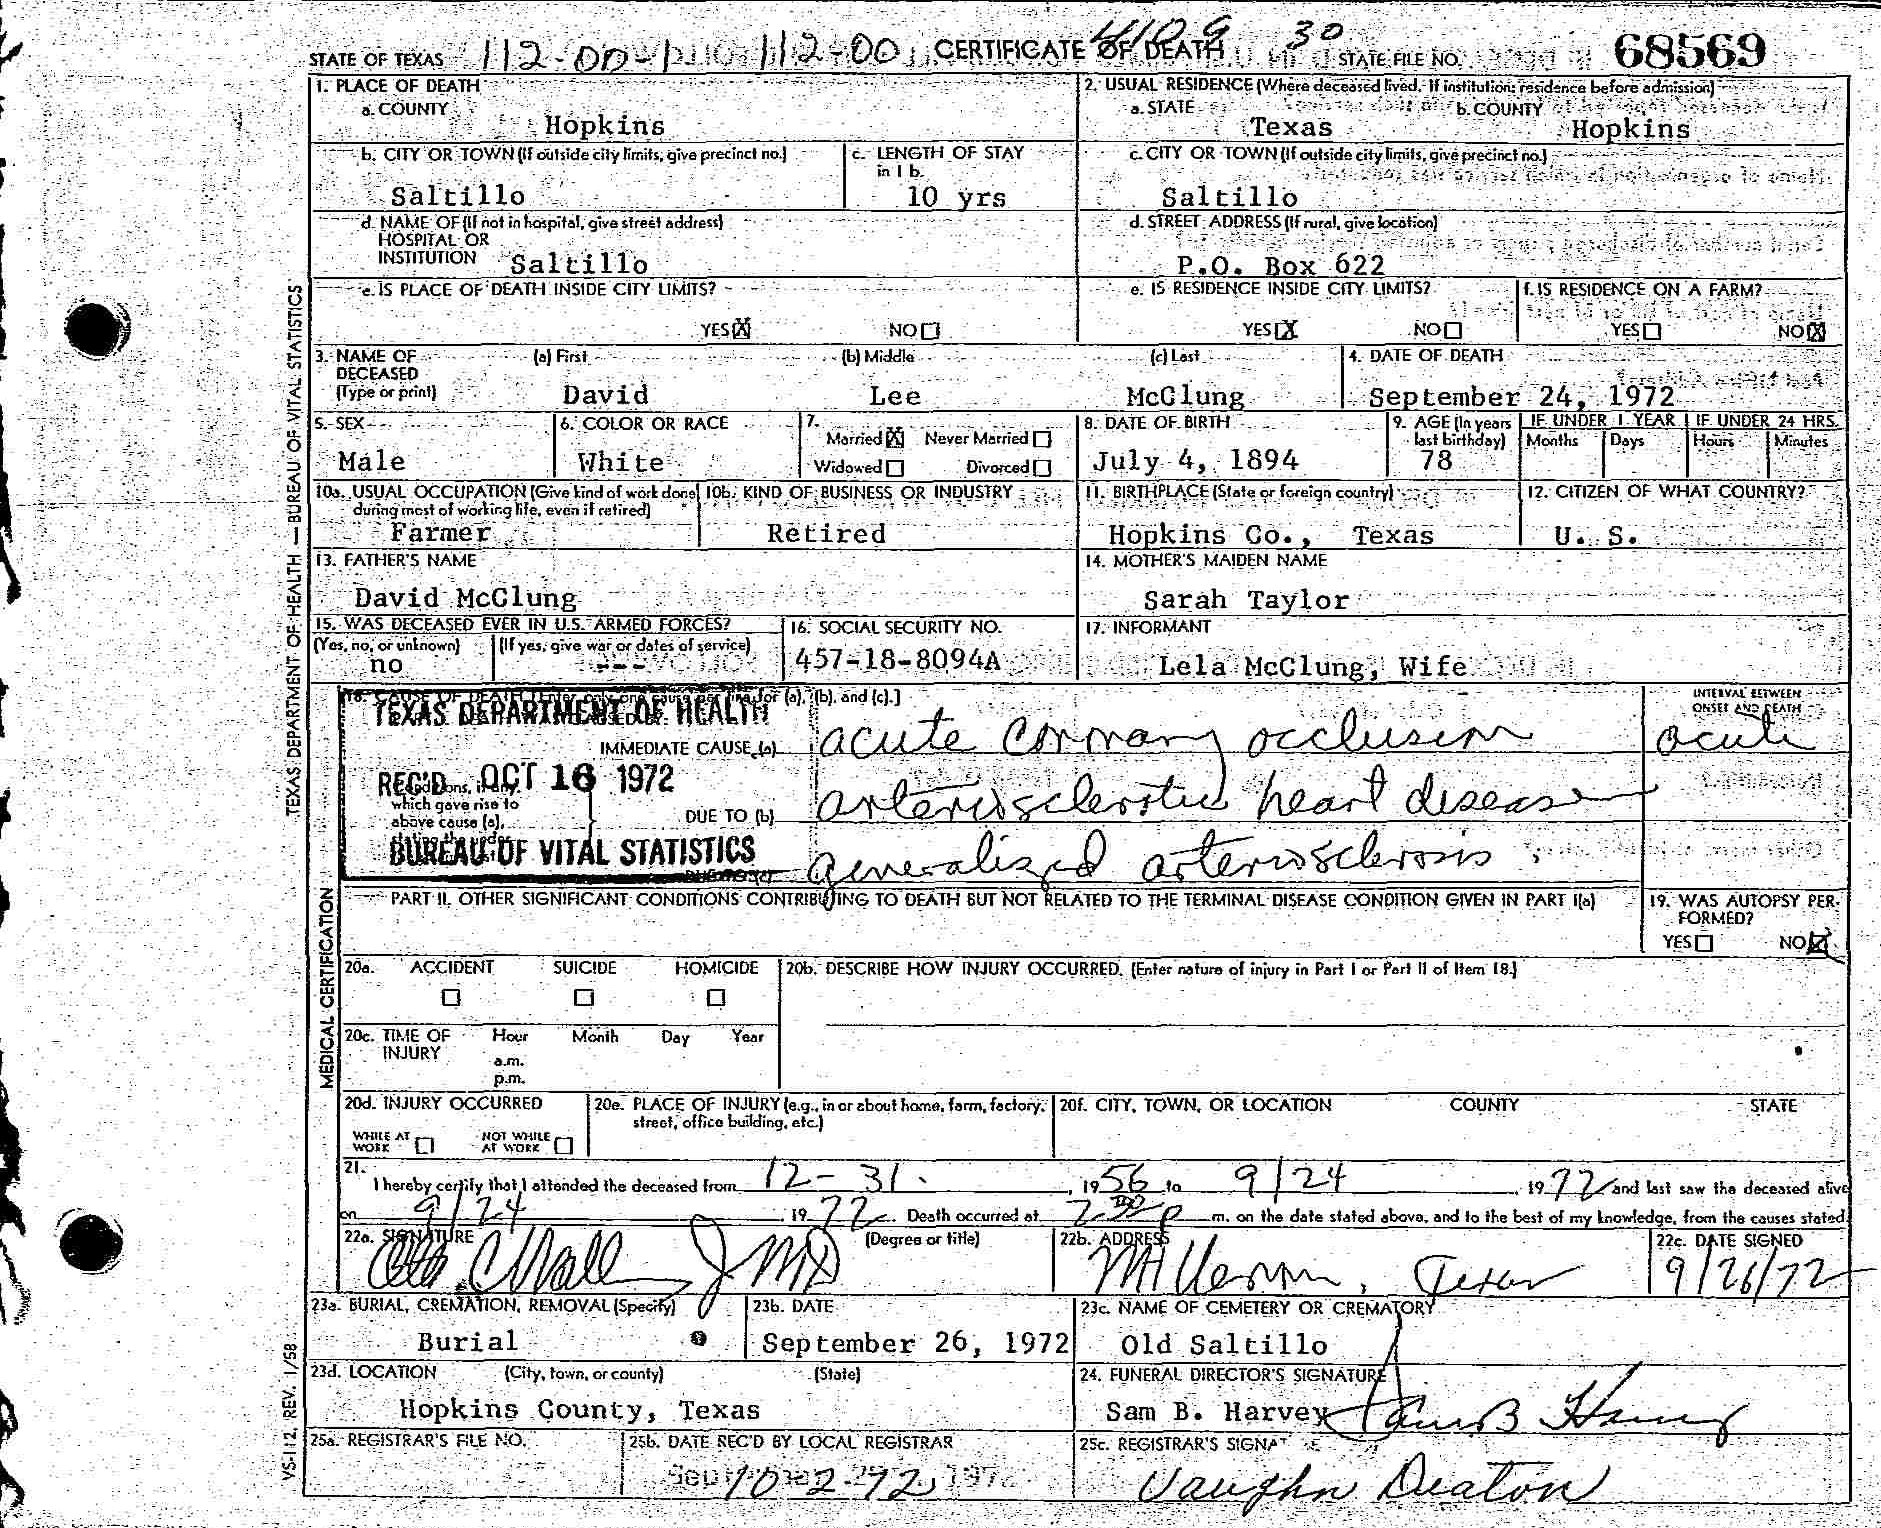 STATE OF TEXAS 112-00-1 112-00 CERTIFICATE OF DEATH 4109 30 STATE FILE NO. 68569
1. PLACE OF DEATH
a. COUNTY
Hopkins
2. USUAL RESIDENCE (Where deceased lived. If institution: residence before admission)
a. STATE b. COUNTY
Texas Hopkins
b. CITY OR TOWN (If outside city limits, give precinct no.)
Saltillo
c. LENGTH OF STAY
in 1 b.
10 yrs
c. CITY OR TOWN (If outside city limits, give precinct no.)
Saltillo
d. NAME OF (If not in hospital, give street address)
HOSPITAL OR
INSTITUTION Saltillo
d. STREET ADDRESS (If rural, give location)
P.O. Box 622
e. IS PLACE OF DEATH INSIDE CITY LIMITS?
YES X NO
e. IS RESIDENCE INSIDE CITY LIMITS?
YES X NO
f. IS RESIDENCE ON A FARM?
YES NO X
3. NAME OF DECEASED (Type or print)
(a) First (b) Middle (c) Last
David Lee McClung
4. DATE OF DEATH
September 24, 1972
5. SEX
Male
6. COLOR OR RACE
White
7.
Married X Never Married
Widowed Divorced
8. DATE OF BIRTH
July 4, 1894
9. AGE (In years last birthday)
78
IF UNDER 1 YEAR IF UNDER 24 HRS.
Months Days Hours Minutes
10a. USUAL OCCUPATION (Give kind of work done
during most of working life, even if retired)
Farmer
10b. KIND OF BUSINESS OR INDUSTRY
Retired
11. BIRTHPLACE (State or foreign country)
Hopkins Co., Texas
12. CITIZEN OF WHAT COUNTRY?
U. S.
13. FATHER'S NAME
David McClung
14. MOTHER'S MAIDEN NAME
Sarah Taylor
15. WAS DECEASED EVER IN U.S. ARMED FORCES?
(Yes, no, or unknown) (If yes, give war or dates of service)
no ---
16. SOCIAL SECURITY NO.
457-18-8094A
17. INFORMANT
Lela McClung, Wife
18. CAUSE OF DEATH [Enter only one cause per line for (a), (b), and (c).]
TEXAS DEPARTMENT OF HEALTH
REC'D OCT 16 1972
BUREAU OF VITAL STATISTICS
INTERVAL BETWEEN
ONSET AND DEATH
IMMEDIATE CAUSE (a) acute coronary occlusion acute
Conditions, if any,
which gave rise to
above cause (a),
stating the under-
DUE TO (b) arteriosclerotic heart disease
generalized arteriosclerosis
PART II. OTHER SIGNIFICANT CONDITIONS CONTRIBUTING TO DEATH BUT NOT RELATED TO THE TERMINAL DISEASE CONDITION GIVEN IN PART I(a)
19. WAS AUTOPSY PER-
FORMED?
YES NO X
20a. ACCIDENT SUICIDE HOMICIDE
20b. DESCRIBE HOW INJURY OCCURRED. (Enter nature of injury in Part I or Part II of Item 18.)
20c. TIME OF INJURY
Hour Month Day Year
a.m.
p.m.
20d. INJURY OCCURRED
WHILE AT WORK NOT WHILE AT WORK
20e. PLACE OF INJURY (e.g., in or about home, farm, factory,
street, office building, etc.)
20f. CITY, TOWN, OR LOCATION COUNTY STATE
21.
I hereby certify that I attended the deceased from 12-31. , 1956 to 9/24 , 1972 and last saw the deceased alive
on 9/24 , 1972. Death occurred at 7:30 p m. on the date stated above, and to the best of my knowledge, from the causes stated.
22a. SIGNATURE (Degree or title)
MD
22b. ADDRESS
Mt Vernon, Texas
22c. DATE SIGNED
9/26/72
23a. BURIAL, CREMATION, REMOVAL (Specify)
Burial
23b. DATE
September 26, 1972
23c. NAME OF CEMETERY OR CREMATORY
Old Saltillo
23d. LOCATION (City, town, or county) (State)
Hopkins County, Texas
24. FUNERAL DIRECTOR'S SIGNATURE
Sam B. Harvey Sam B Harvey
25a. REGISTRAR'S FILE NO.
25b. DATE REC'D BY LOCAL REGISTRAR
10-2-72
25c. REGISTRAR'S SIGNATURE
Vaughn Deaton
TEXAS DEPARTMENT OF HEALTH — BUREAU OF VITAL STATISTICS
MEDICAL CERTIFICATION
VS-112, REV. 1/58